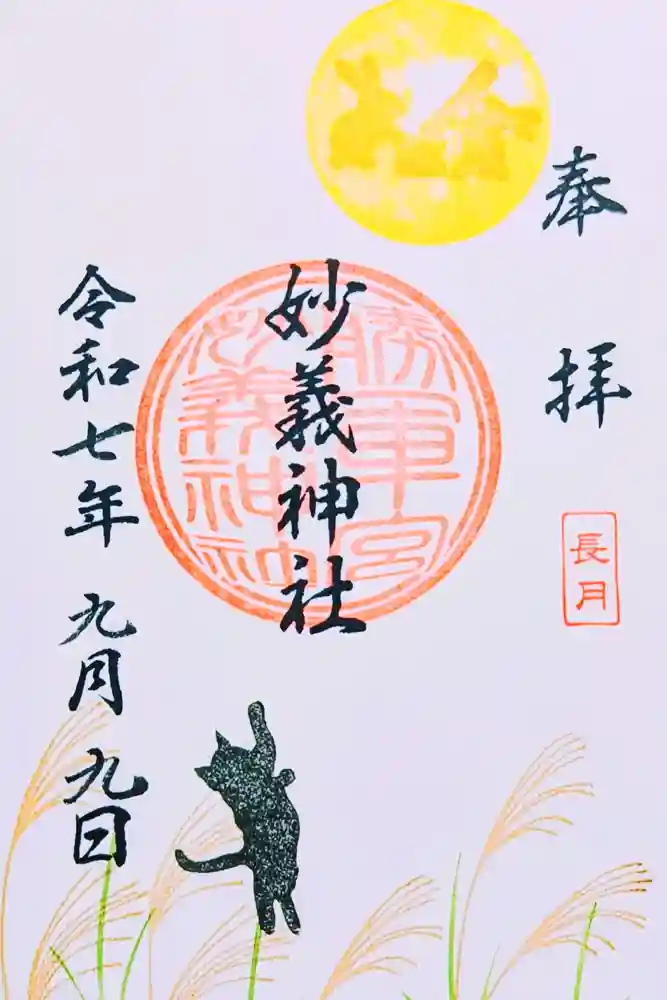 奉拝
長月
妙義神社
勝軍宮
妙義神社
令和七年 九月 九日